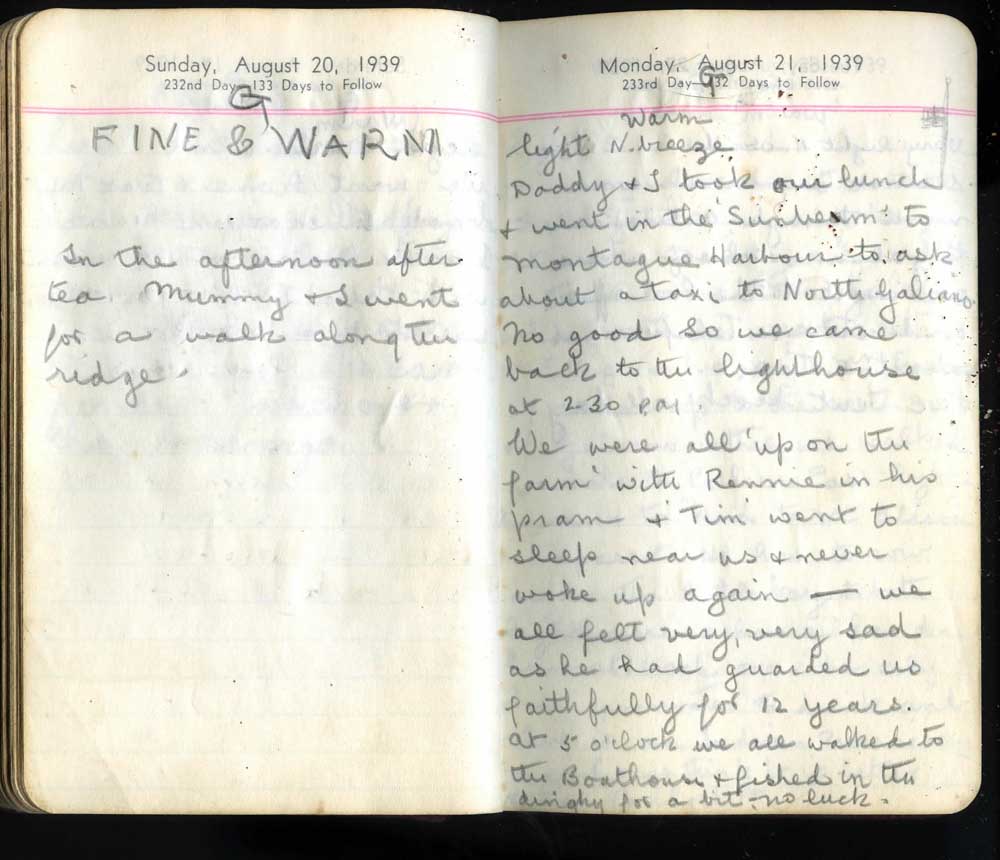 Sunday, August 20, 1939
232nd Day—133 Days to Follow
G
FINE & WARM
In the afternoon after
tea Mummy & I went
for a walk along the
ridge.
Monday, August 21, 1939
233rd Day—132 Days to Follow
G
Warm
light N. breeze
Daddy & I took our lunch
& went in the 'Sunbeam' to
Montague Harbour to ask
about a taxi to North Galiano.
No good So we came
back to the lighthouse
at 2 30 P.M.
We were all 'up on the
farm' with Rennie in his
pram & 'Tim' went to
sleep near us & never
woke up again — we
all felt very, very sad
as he had guarded us
faithfully for 12 years.
at 5 o'clock we all walked to
the Boathouse & fished in the
dinghy for a bit - no luck.